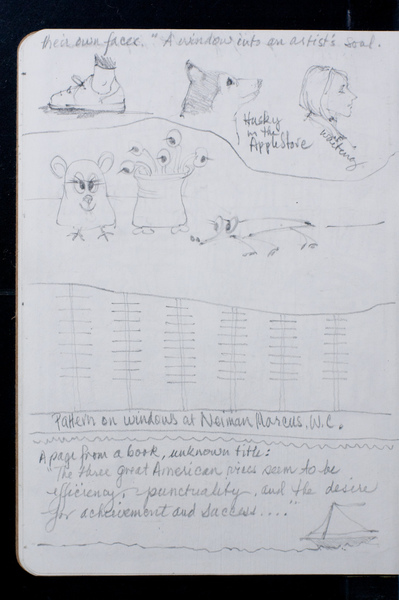 their own faces." A window into an artist's soul.
Husky
in the
Apple Store
waiting
Pattern on windows at Neiman Marcus, W.C.
A page from a book, unknown title:
"The three great American vices seem to be
efficiency, punctuality, and the desire
for acheivement and success...."